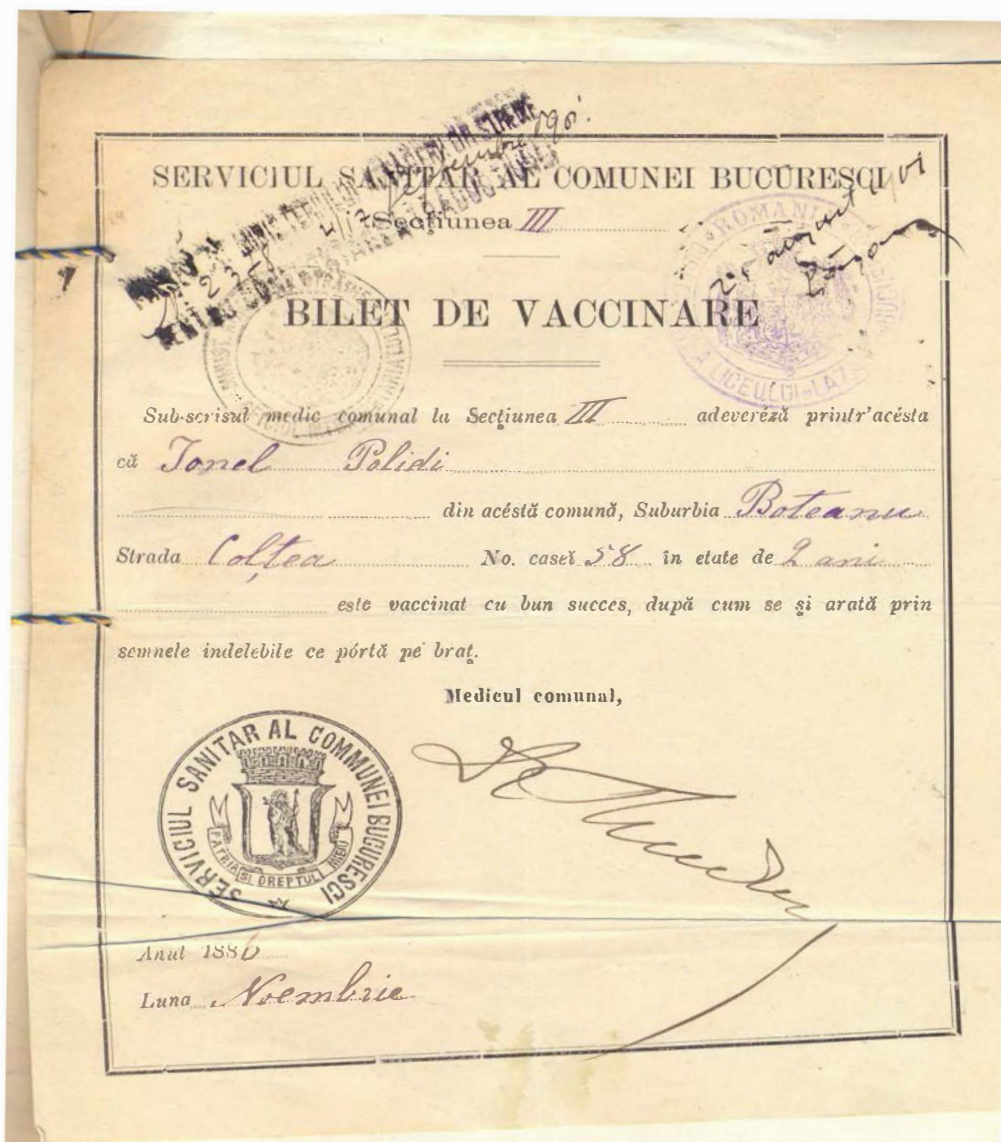 SERVICIUL SANITAR AL COMUNEI BUCURESCI
Secțiunea III
BILET DE VACCINARE
Sub-scrisul medic comunal la Secţiunea III adeveréză printr'acésta
că Ionel Polidi
din acéstă comună, Suburbia Boteanu
Strada Colțea No. caseĭ 58 în etate de 2 ani
este vaccinat cu bun succes, după cum se şi arată prin
semnele indelebile ce pórtă pe braţ.
Medicul comunal,
SERVICIUL SANITAR AL COMMUNEI BUCURESCI
PATRIA SI DREPTUL MEU
Anul 1886
Luna Noembrie
ROMANIA
A LICEULUI LAZAR
25 august 1901